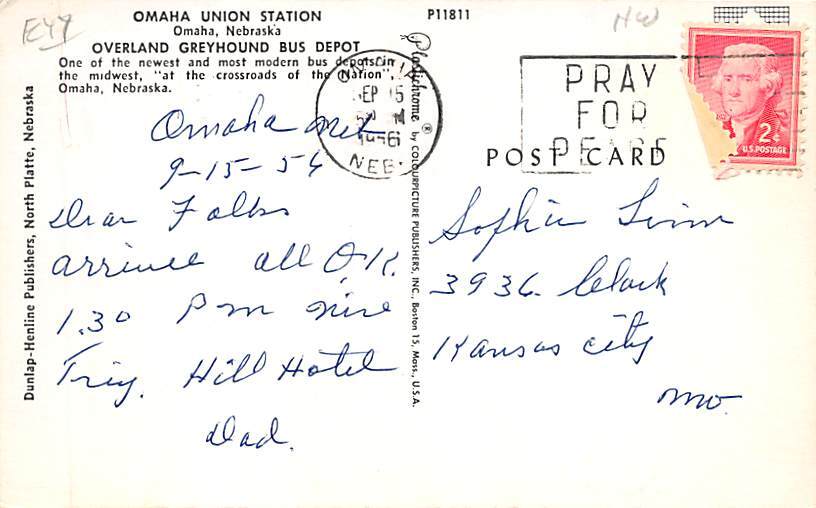 E47
OMAHA UNION STATION
Omaha, Nebraska
OVERLAND GREYHOUND BUS DEPOT
One of the newest and most modern bus depots in
the midwest, "at the crossroads of the Nation",
Omaha, Nebraska.
P11811
Omaha Neb
9-15-56
Dear Folks
arrived all O.K.
1.30 Pm nice
Trip. Hill Hotel
Dad.
Dunlap-Henline Publishers, North Platte, Nebraska
Plastichrome ® by COLOURPICTURE PUBLISHERS, INC., Boston 15, Mass., U.S.A.
SEP 15
1956
NEB.
PRAY
FOR
PEACE
2¢
U.S. POSTAGE
POST CARD
Sophie
3936. Clark
Kansas city
mo.